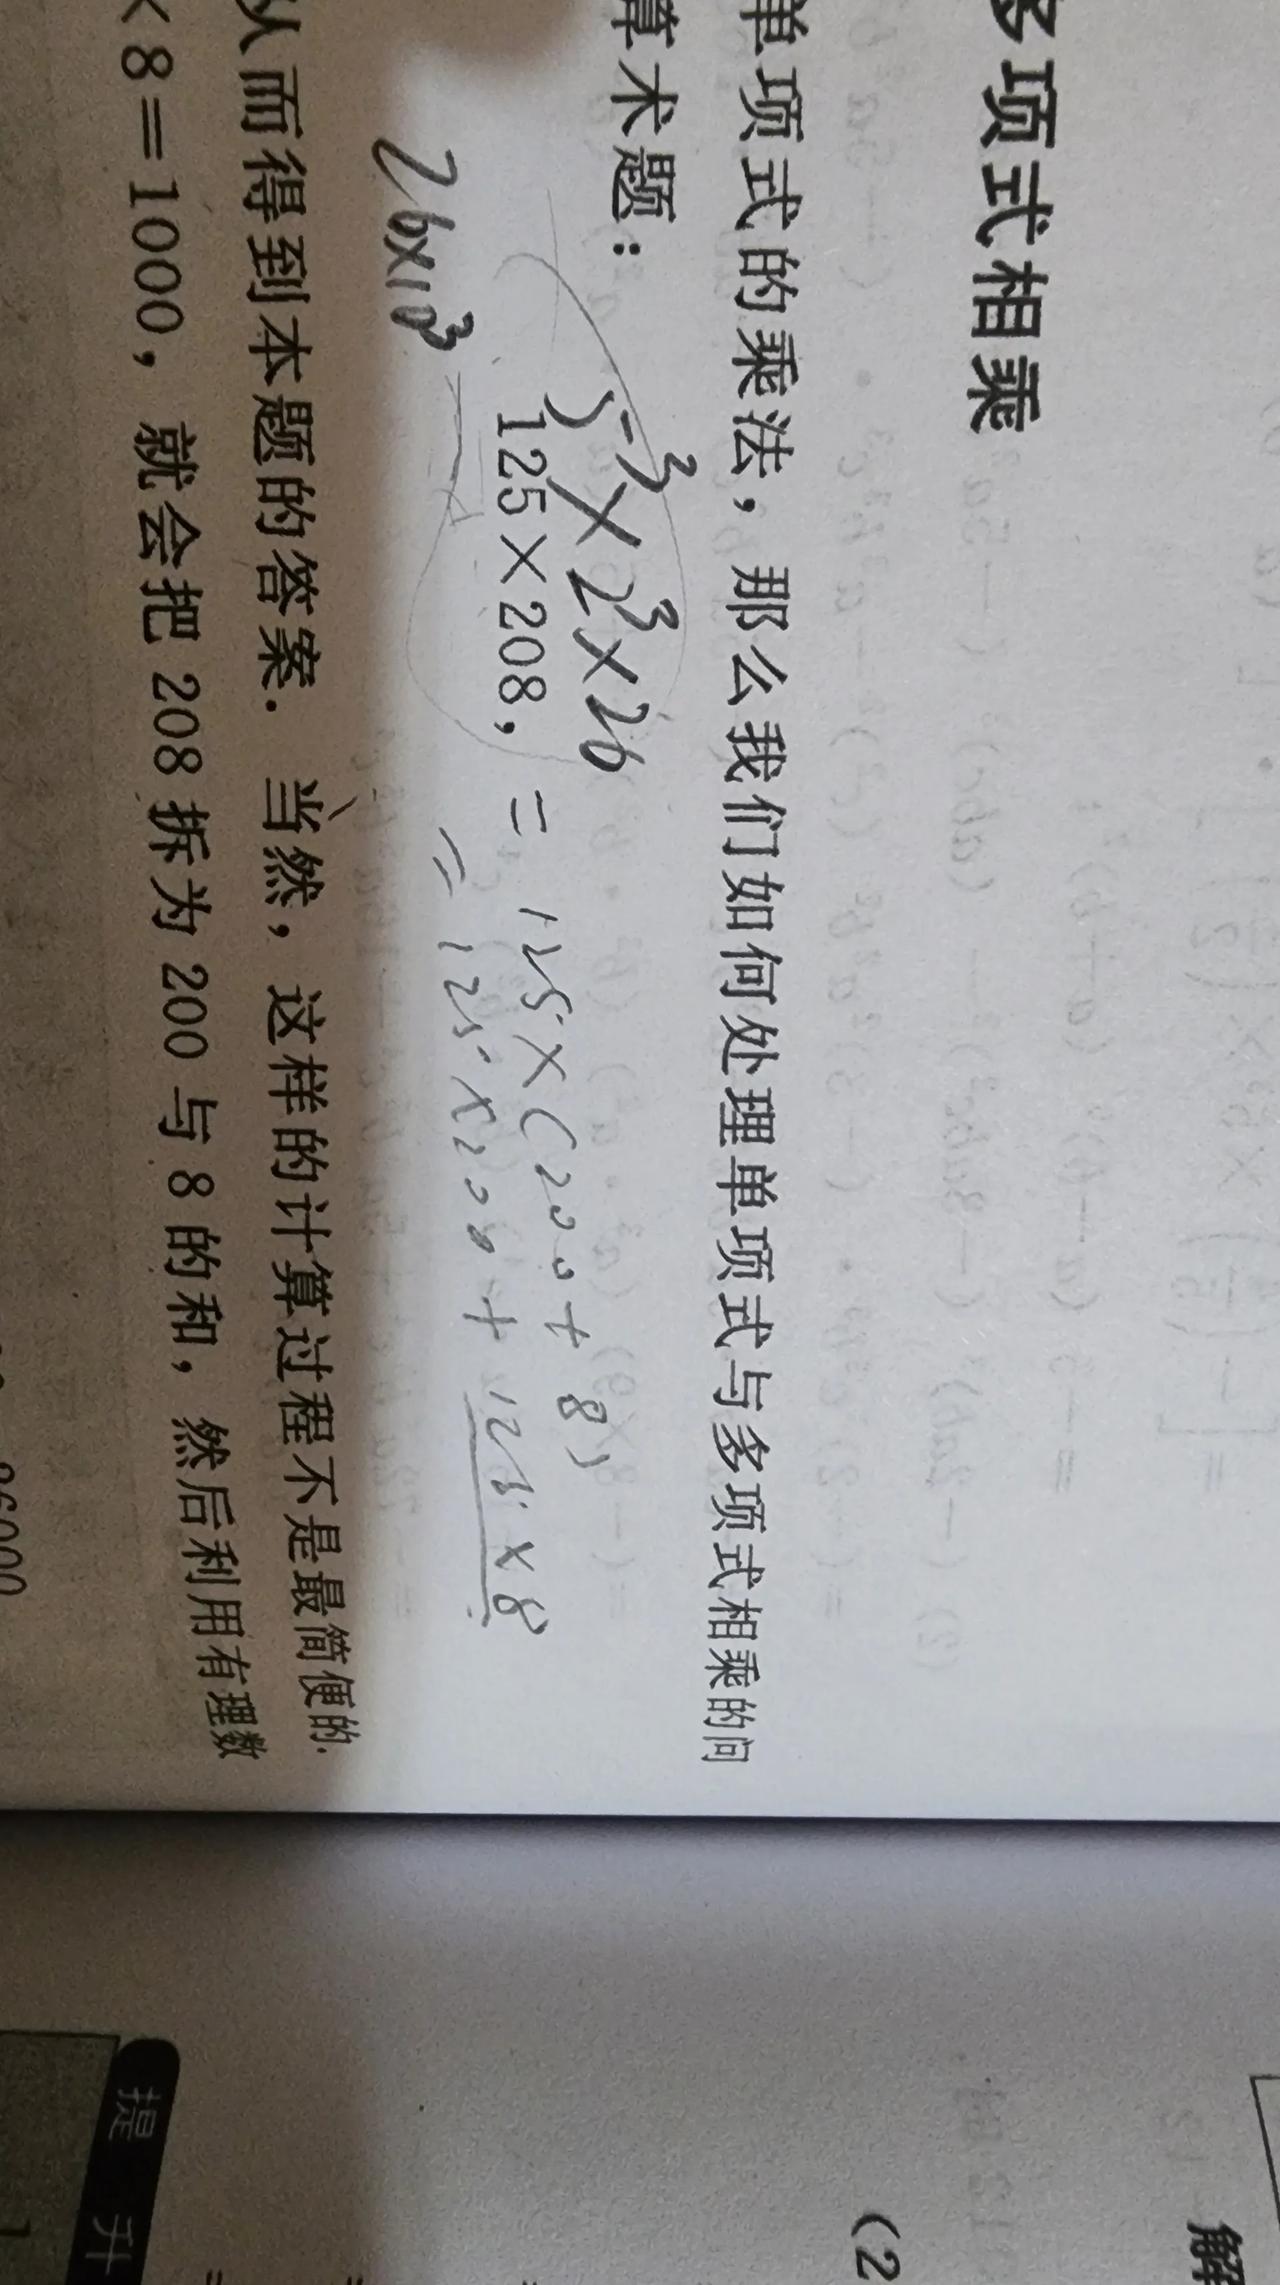 多项式相乘
单项式的乘法，那么我们如何处理单项式与多项式相乘的问
算术题：
5³×2³×26
125×208，=125×(200+8)
=125×200+125×8
26×10³
从而得到本题的答案．当然，这样的计算过程不是最简便的．
×8=1000，就会把 208 拆为 200 与 8 的和，然后利用有理数
26000
提升
解
(2